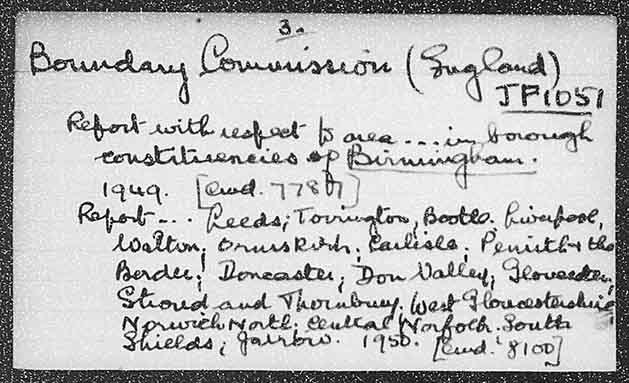 3.
Boundary Commission (England)
JF1051
Report with respect to area ... in borough
constituencies of Birmingham.
1949. [Cmd. 7787]
Report ... Leeds; Torrington, Bootle. Liverpool,
Walton; Ormskirk; Carlisle; Penrith & the
Border; Doncaster; Don Valley; Gloucester,
Stroud and Thornbury, West Gloucestershire
Norwich North; Central Norfolk. South
Shields; Jarrow. 1950. [Cmd. 8100]